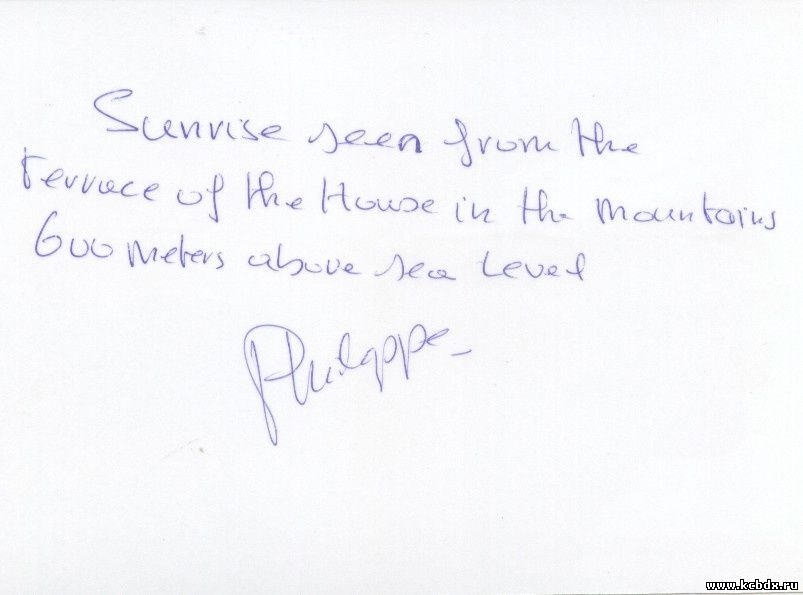 Sunrise seen from the
terrace of the House in the mountains
600 Meters above sea Level
Philippe
www.kcbdx.ru